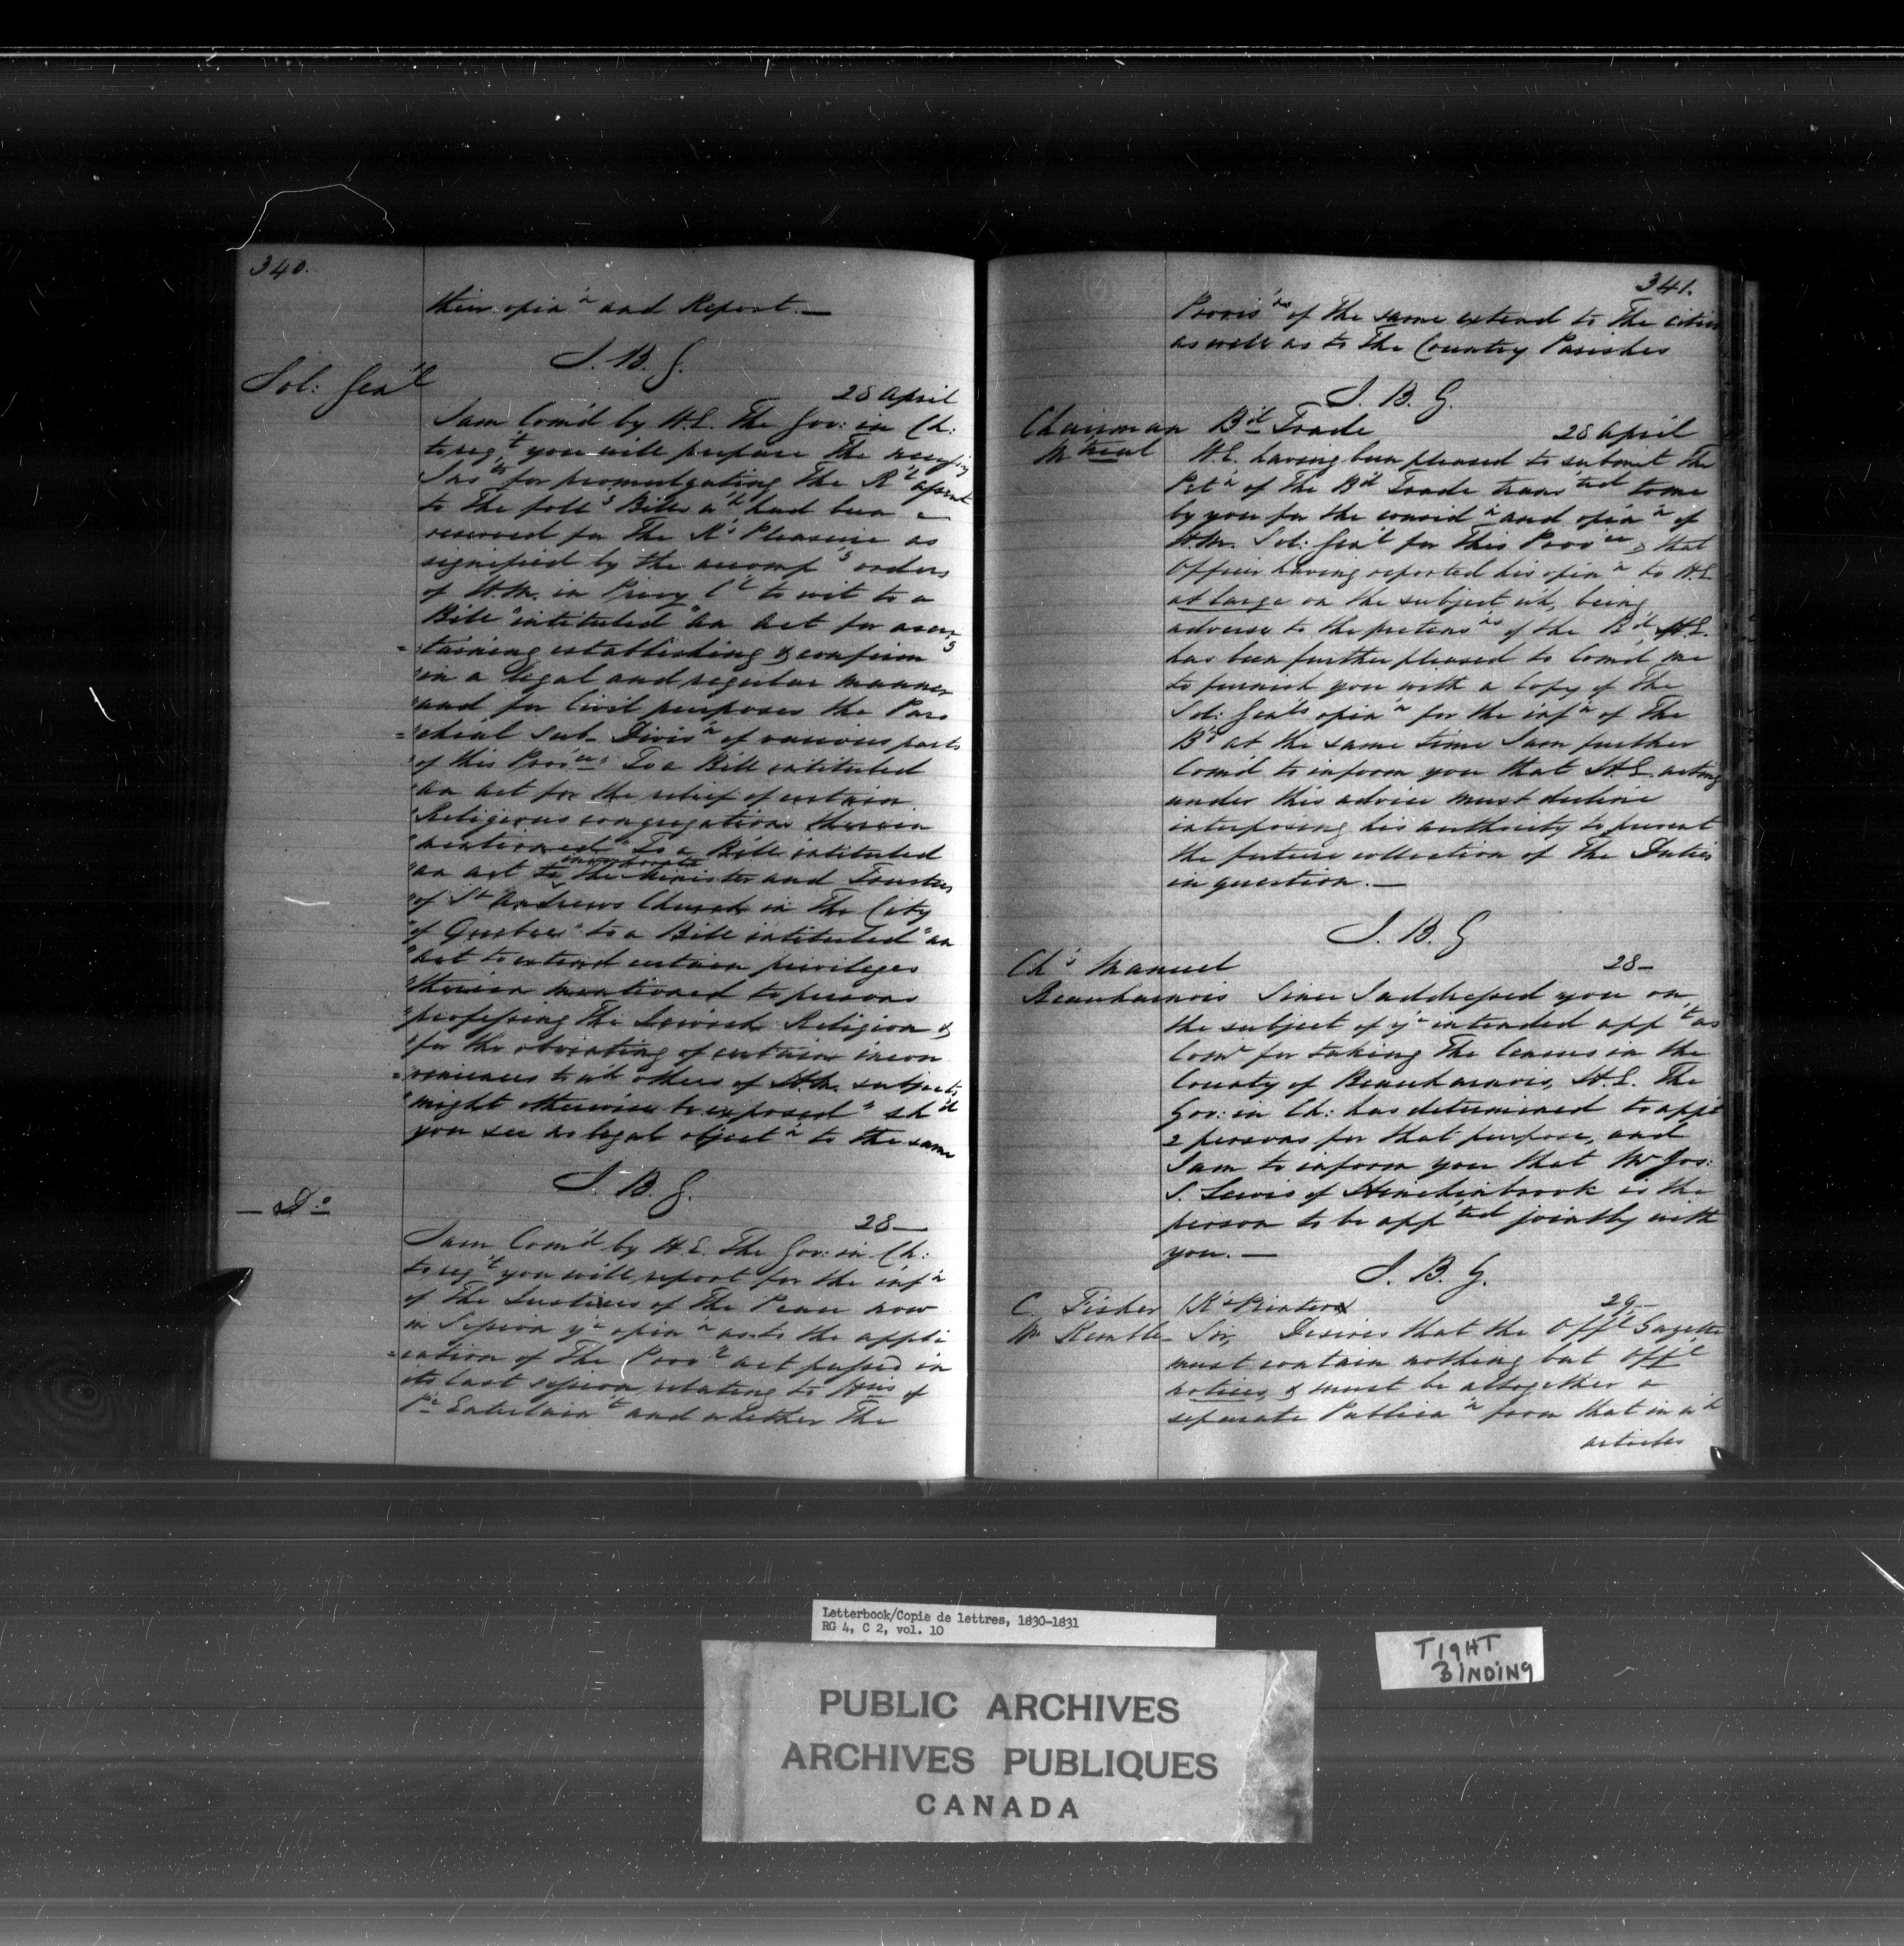 340.
their opin'n and Report. —
J. B. G.
Sol: Gen'l
28 April
I am Com'd by H.E. The Gov: in Ch:
to req't you will prepare The necess'y
Ins'ts for promulgating the R'l assent
to the foll'g Bills w'h had been
reserved for The K's Pleasure as
signified by the accomp'g orders
of H.M. in Privy C'l to wit to a
Bill "intituled "an act for ascer
= "taining establishing & confirm'g
"in a legal and regular manner
"and for Civil purposes the Paro
= "chial Sub-Divis'n of various parts
"of this Prov'ce" To a Bill intituled
"an act for the relief of certain
"Religious congregations therein
"mentioned" To a Bill intituled
"an act to incorporate the Minister and Trustees
"of St Andrews Church in The City
"of Quebec" to a Bill intituled "an
"act to extend certain privileges
"therein mentioned to persons
"professing The Jewish Religion &
"for the obviating of certain incon
= "veniences to w'h others of H.M. subjects
"might otherwise be exposed" sh'd
you see no legal object'n to the same
J. B. G.
— Do
28 —
I am Com'd by H.E. The Gov: in Ch:
to req't you will report for the inf'n
of The Justices of The Peace now
in Session y'r opin'n as to the appli
= cation of The Prov'l act passed in
its last session relating to Hses of
P'c Entertain't and whether The
341.
Provis'ns of the same extend to The cities
as well as to The Country Parishes
J. B. G.
Chairman B'd Trade
28 April
M'treal
H.E. having been pleased to submit The
Pet'n of The B'd Trade trans'ted to me
by you for the consid'n and opin'n of
H.M. Sol: Gen'l for this Prov'ce & that
Officer having reported his opin'n to H.E.
at large on the subject w'h, being
adverse to the pretens'ns of the B'd H.E.
has been further pleased to Com'd me
to furnish you with a Copy of The
Sol: Gen'ls opin'n for the inf'n of The
B'd at the same time I am further
Com'd to inform you that H.E. acting
under this advice must decline
interposing his authority to prevent
the future collection of The Duties
in question. —
J. B. G
Ch's Manuel
28 —
Beauharnois
Since I addressed you on
the subject of y'r intended app't as
Com'r for taking The Census in the
County of Beauharnois, H.E. The
Gov: in Ch: has determined to app't
2 persons for that purpose, and
I am to inform you that Mr Jos:
S. Lewis of Hinchinbrook is the
person to be app'ted jointly with
you. —
J. B. G.
C. Fisher (K's Printer)
29 —
Mr Kemble
Sir, Desires that the Off'l Gazette
must contain nothing but Off'l
notices, & must be altogether a
separate Publica'n from that in w'h
articles
Letterbook/Copie de lettres, 1830-1831
RG 4, C 2, vol. 10
TIGHT
BINDING
PUBLIC ARCHIVES
ARCHIVES PUBLIQUES
CANADA